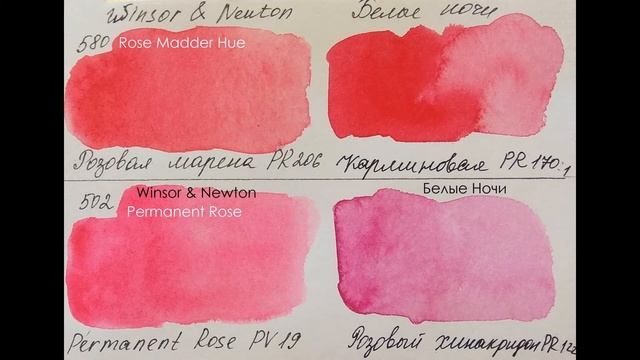 Winsor & Newton
Белые ночи
580 Rose Madder Hue
Розовая марена PR206
Карминовая PR 170:1
Winsor & Newton
Белые Ночи
502 Permanent Rose
Permanent Rose PV19
Розовый хинакридон PR122